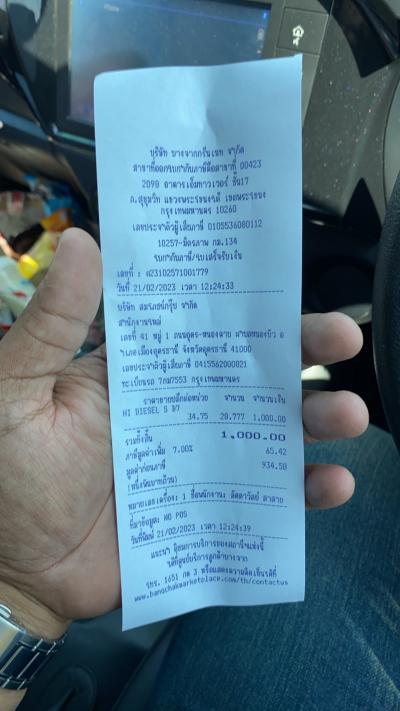 บริษัท บางจากกรีนเนท จำกัด
สาขาที่ออกใบกำกับภาษีคือสาขาที่ 00423
2098 อาคารเอ็มทาวเวอร์ ชั้น17
ถ.สุขุมวิท แขวงพระโขนงใต้ เขตพระโขนง
กรุงเทพมหานคร 10260
เลขประจำตัวผู้เสียภาษี 0105536080112
10257-มิตรภาพ กม.134
ใบกำกับภาษี/ใบเสร็จรับเงิน
เลขที่ : A23102571001779
วันที่ 21/02/2023 เวลา 12:24:33
บริษัท สมเกียรติกรุ๊ป จำกัด
สำนักงานใหญ่
เลขที่ 41 หมู่ 1 ถนนอุดร-หนองคาย ตำบลหนองบัว อ
ำเภอเมืองอุดรธานี จังหวัดอุดรธานี 41000
เลขประจำตัวผู้เสียภาษี 0415562000021
ทะเบียนรถ 7กม7553 กรุงเทพมหานคร
ราคาขายปลีกต่อหน่วย จำนวน จำนวนเงิน
HI DIESEL S B7
34.75 28.777 1,000.00
รวมทั้งสิ้น 1,000.00
ภาษีมูลค่าเพิ่ม 7.00% 65.42
มูลค่าก่อนภาษี 934.58
(หนึ่งพันบาทถ้วน)
หมายเลขเครื่อง: 1 ชื่อพนักงาน: ลัดดาวัลย์
ที่มาข้อมูล: MO POS
วันที่พิมพ์ 21/02/2023 เวลา 12:24:39
แนะนำ ติชมการบริการของสถานีฯแห่งนี้
ได้ที่ศูนย์บริการลูกค้าบางจาก
โทร. 1651 กด 3 หรือแสดงความคิดเห็นได้ที่
www.bangchakmarketplace.com/th/contactus